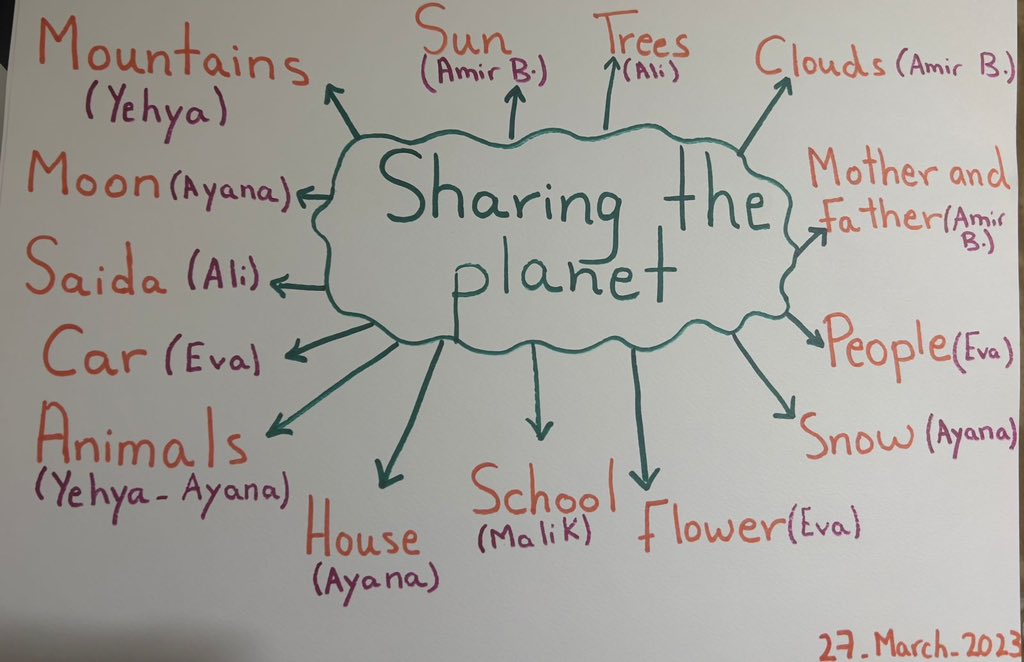 Mountains
(Yehya)
Sun
(Amir B.)
Trees
(Ali)
Clouds (Amir B.)
Sharing the
planet
Moon (Ayana)
Mother and
Father (Amir
B.)
Saida (Ali)
Car (Eva)
People (Eva)
Animals
(Yehya - Ayana)
Snow (Ayana)
House
(Ayana)
School
(Malik)
Flower (Eva)
27_March_2023